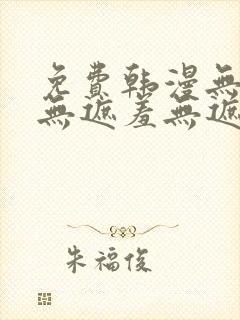 免費韩漫無
無遮羞無遮
朱福俊